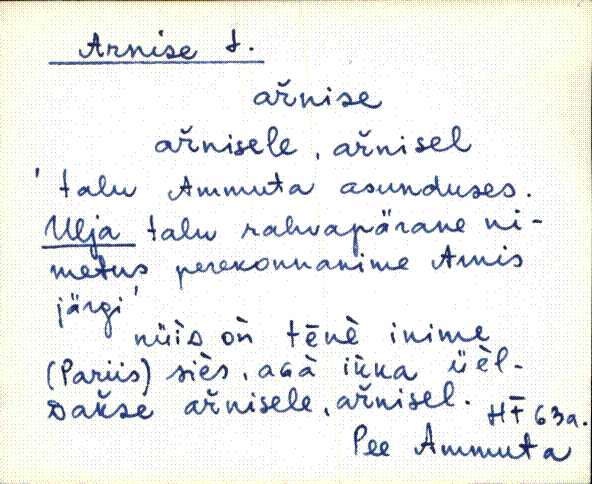 Arnise t.
ař̀nise
ař̀nisele, ař̀nisel
'talu Ammuta asunduses.
Ulja talu rahvapärane ni-
metus perekonnanime Arnis
järgi'
nüìs oǹ tēnè inime
(Pariis) siès, agà ik̆ka üèl-
dak̆se ař̀nisele, ař̀nisel.
HF 63a.
Pee Ammuta